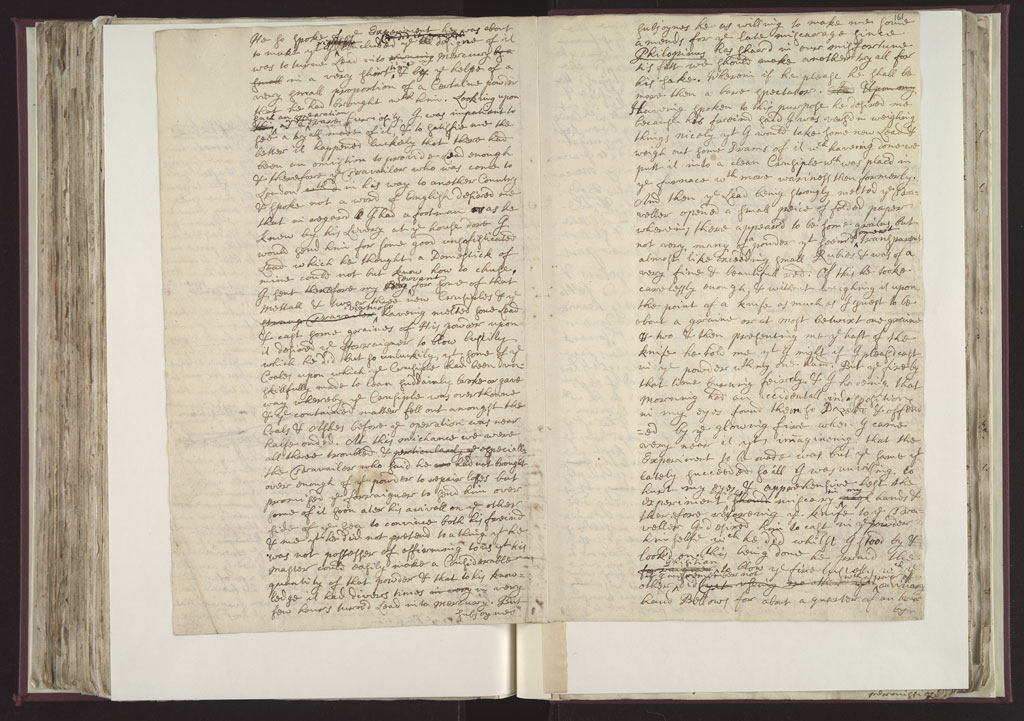 He so spoke
ye Experiment he was about
to make
was to turne Lead into running Mercury by a
small in a very short & by ye helpe of a
very small proportion of a Certaine powder
that he had brought with him. Looking upon
such an operation
as a great Curiosity, I was impatient to
see a tryall made of it, & to satisfie me the
better it happened luckily that there had
been an omission to provide Lead enough
& therefore ye Travailer who was come to
London in his way to another Country
& spoke not a word of English desired me
that in regard I had a footman as he
knew by his Livery at ye house dore I
would send him for some good unsofisticated
Lead which he thought a Domestick of
mine could not but know how to chuse.
I sent therefore my servant for some of that
Mettall & two or three new Crusibles & ye
having melted some Lead
& cast some graines of His powder upon
it desired ye Forraigner to blow lustily
which he did but so unluckily yt some of ye
Coales upon which ye Crusible had been
skillfully made to lean suddainly broke or gave
way whereby ye Crusible was overthrowne
& ye contained matter fell out amongst the
Coals & Ashes before ye operation was near
halfe ended. At this mischance we were
all three troubled & particularly ye especially
the Travailer who said he had not brought
over enough of ye powder to repair loses but
promised ye forraigner to send him over
some of it soon after his arrivall on ye other
side of ye sea to convince both his freind
& me yt he did not pretend to a thing yt he
was not possessor of affirming to us yt his
master could easily make a Considerable
quantity of that powder & that to his know-
ledge it had divers times in very in a very
few hours turnd Lead into Mercury. But
subjoynes
161
subjoynes he as willing to make me some
amends for ye late miscarage since
Philoponus has shaird in our misfortune
his fast we should make another tryall for
his sake. Wherein if he please he shall be
more then a bare spectator. Upon my
Having spoken to this purpose he desired me
because his freind said I was versd in weighing
things nicely yt I would take some new Lead &
weigh out some drams of it wch haveing done we
put it into a clean Crusiple wch was placd in
ye furnace wth more wariness then formerly.
And then ye Lead being strongly melted ye Tra-
veller opened a small peice of folded paper
wherein there appeard to be some graines but
not very many of a powder yt seemd somewt Transparent
almost like exceeding small Rubies & was of a
very fine & beautifull red. Of this he tooke
carelessly enough, & without weighing it upon
the point of a knife as much as I guest to be
about a graine or at most betwixt one graine
& two & then presenting me ye haft of the
knife he told me yt I might if I pleasd cast
in ye powder wth my own hand. But ye fire by
that time burning feircely & I haveing that
morning had an accidental indisposition
in my eyes found them so Dazeled & offend
=ed by ye glowing fire when I came
very near it yt imagining that the
Experiment to be made was but ye same yt
lately succeeded so ill I was unwilling to
hurt my eyes & apprehensive lest the
Experiment should miscary in my hands &
therefore restoreing ye knife to ye Tra-
veller I desired him to cast in ye powder
himselfe wch he did whilst I stood by &
lookd on, this being done he
to blow ye fire lustily wth ye
other
hand Bellows for about a quarter of an hour